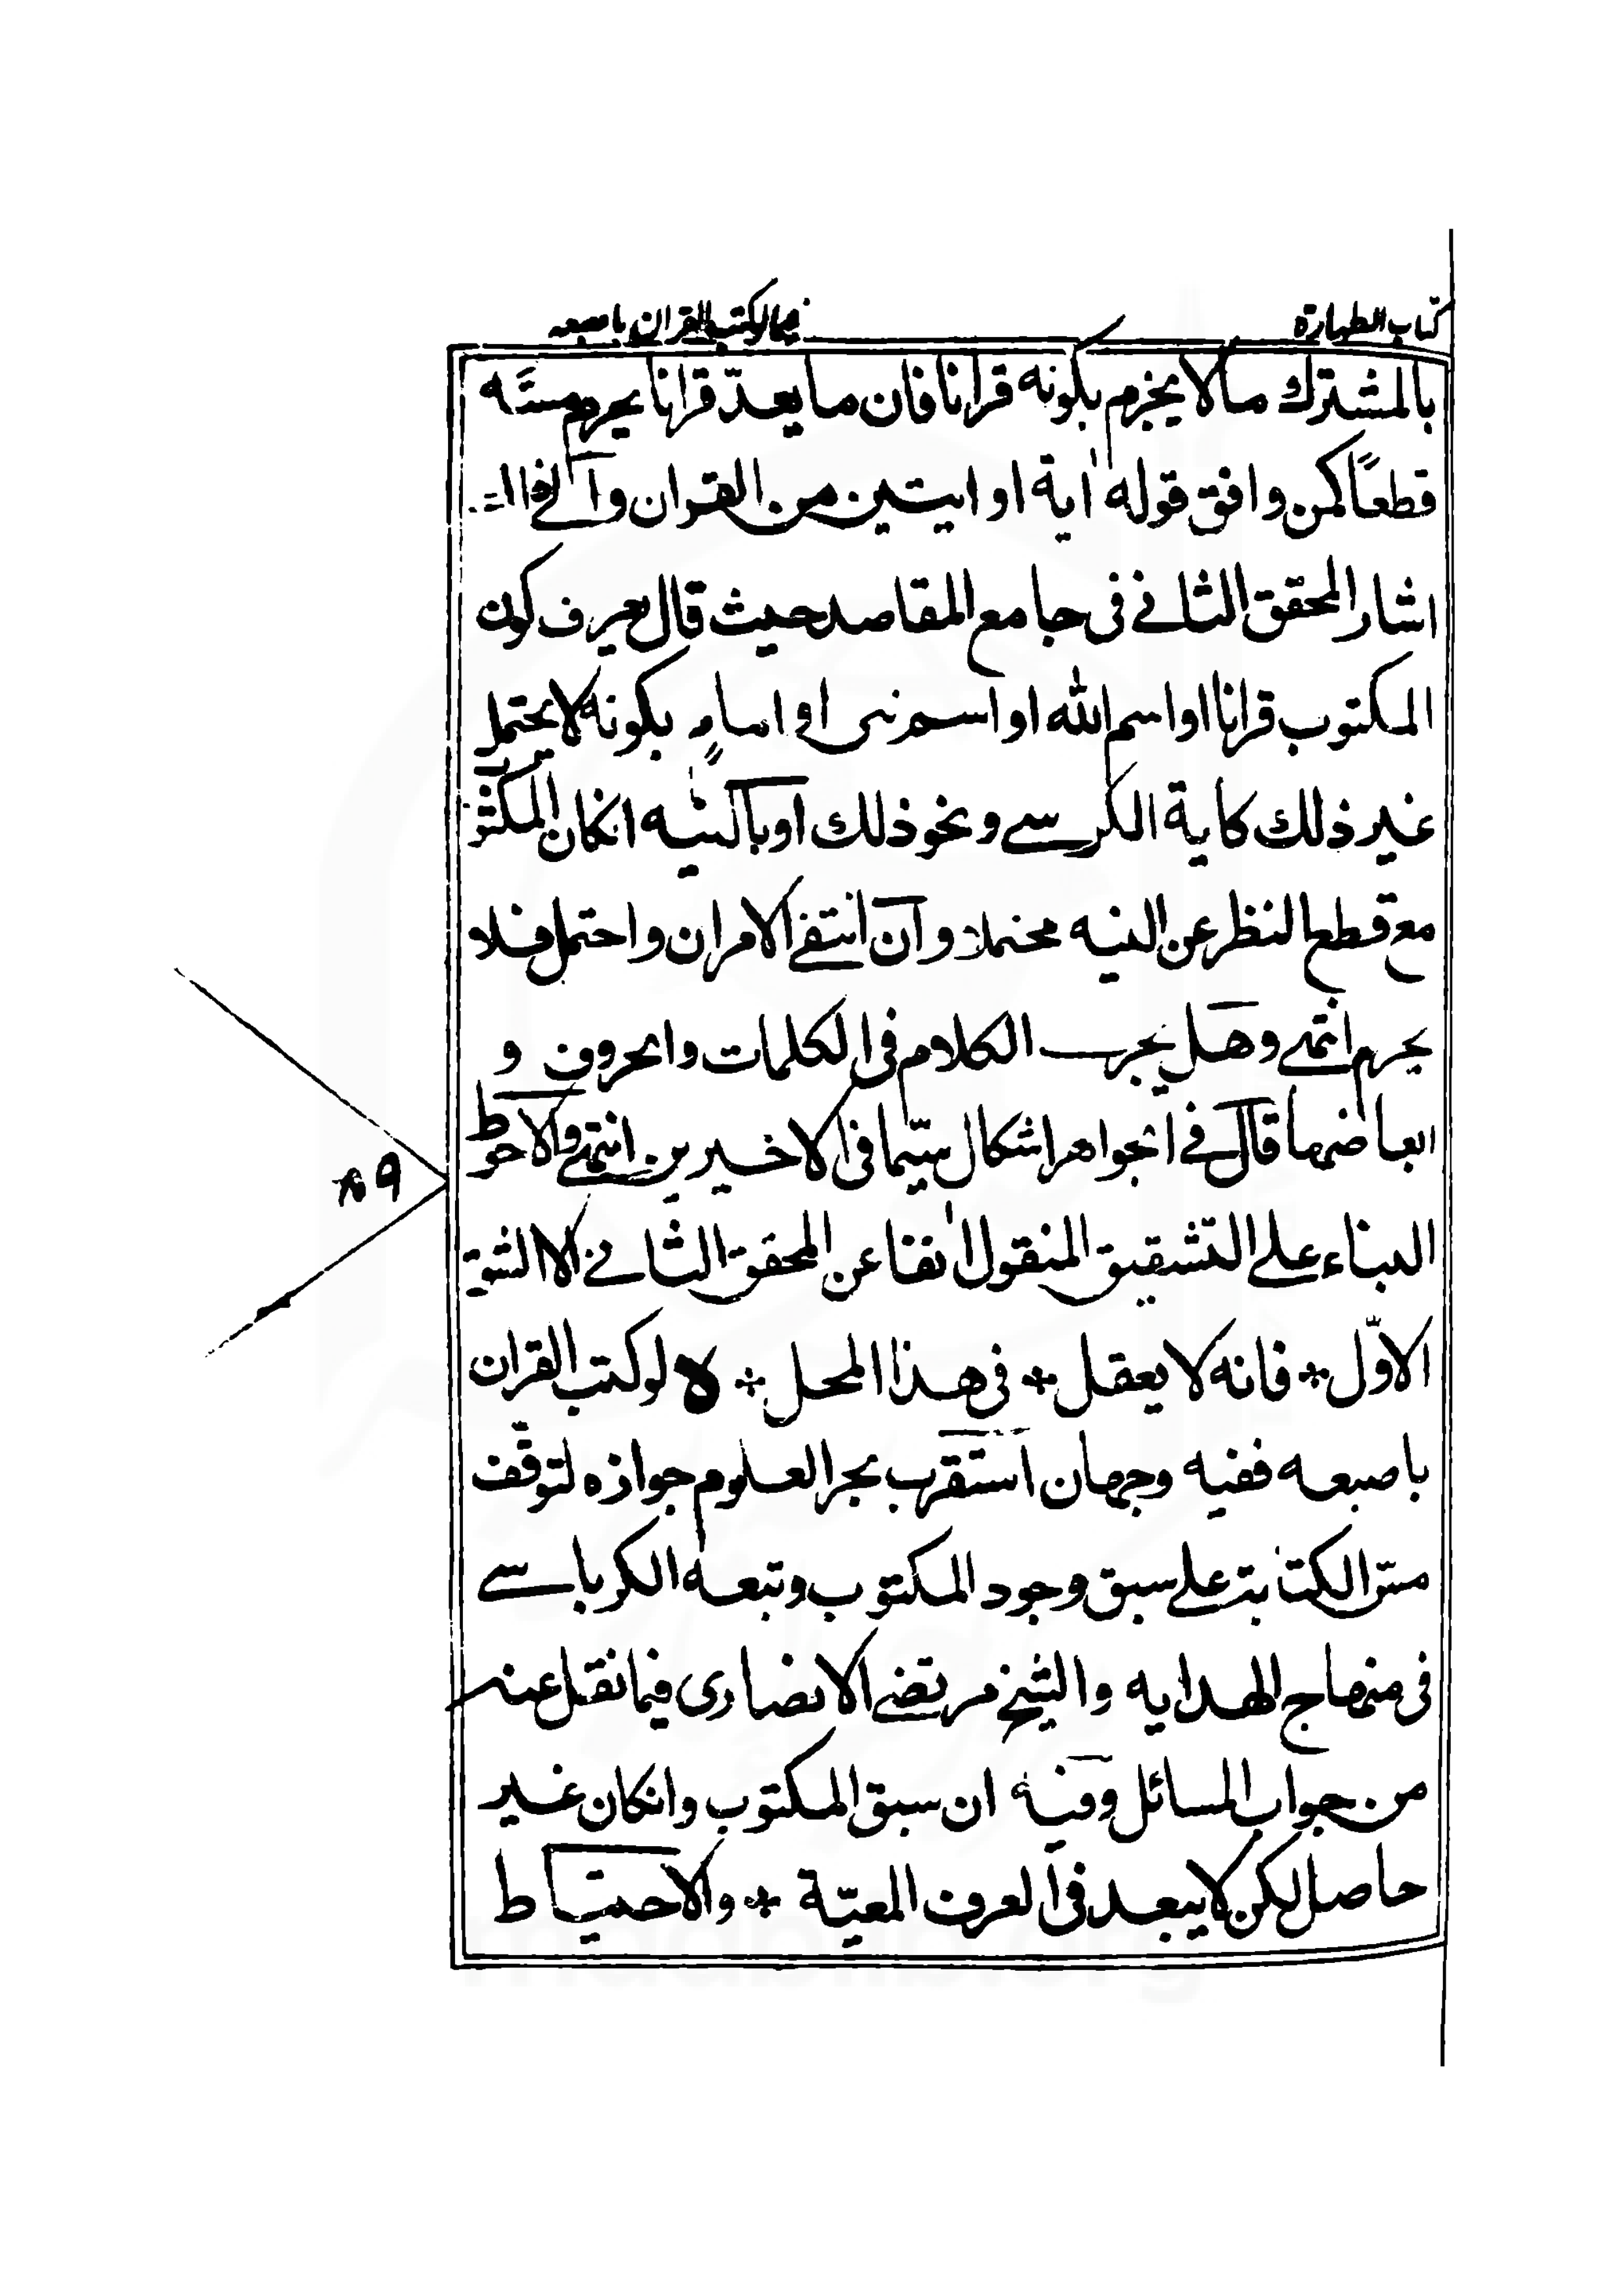 كتاب الطهارة
فيما لو كتب القران باصبعه
بالمشترك مالا يجزم بكونه قرانا فان ما يعدّ قرانا يحرم مسّه
قطعًا كمن وافق قوله اية او ايتين من القران و
اشار المحقق الثانے فى جامع المقاصد حيث قال يعرف كون
المكتوب قرانا او اسم الله او اسم نبى او امام بكونه لا يحتمل
غير ذلك كاية الكرسے ونحو ذلك او بالنيه انكان المكتوب
مع قطع النظر عن النيه محتملا وان انتفے الامران واحتمل فلا
يحرم انتهے وهل يجرى الكلام فى الكلمات والحروف و
ابعاضها قال فے الجواهر اشكال سيّما فى الاخيرين انتهے والاحوط
البناء علے التشقيق المنقول انفا عن المحقق الثانے الا الشق
الاوّل * فانه لا يعقل * فى هذا المحل * ه لو كتب القران
باصبعه ففيه وجهان استقرب بحر العلوم جوازه لتوقّف
مسّ الكتابت علے سبق وجود المكتوب وتبعه الكرباسے
فى منهاج الهدايه والشيخ مرتضے الانصارى فيما نقل عنه
من جواب المسائل وفيه ان سبق المكتوب وانكان غير
حاصل لكن لا يبعد فى العرف المعيّة * والاحتياط